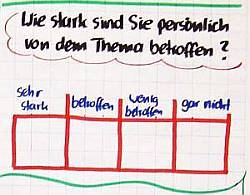 Wie stark sind Sie persönlich
von dem Thema betroffen?
sehr stark betroffen wenig betroffen gar nicht